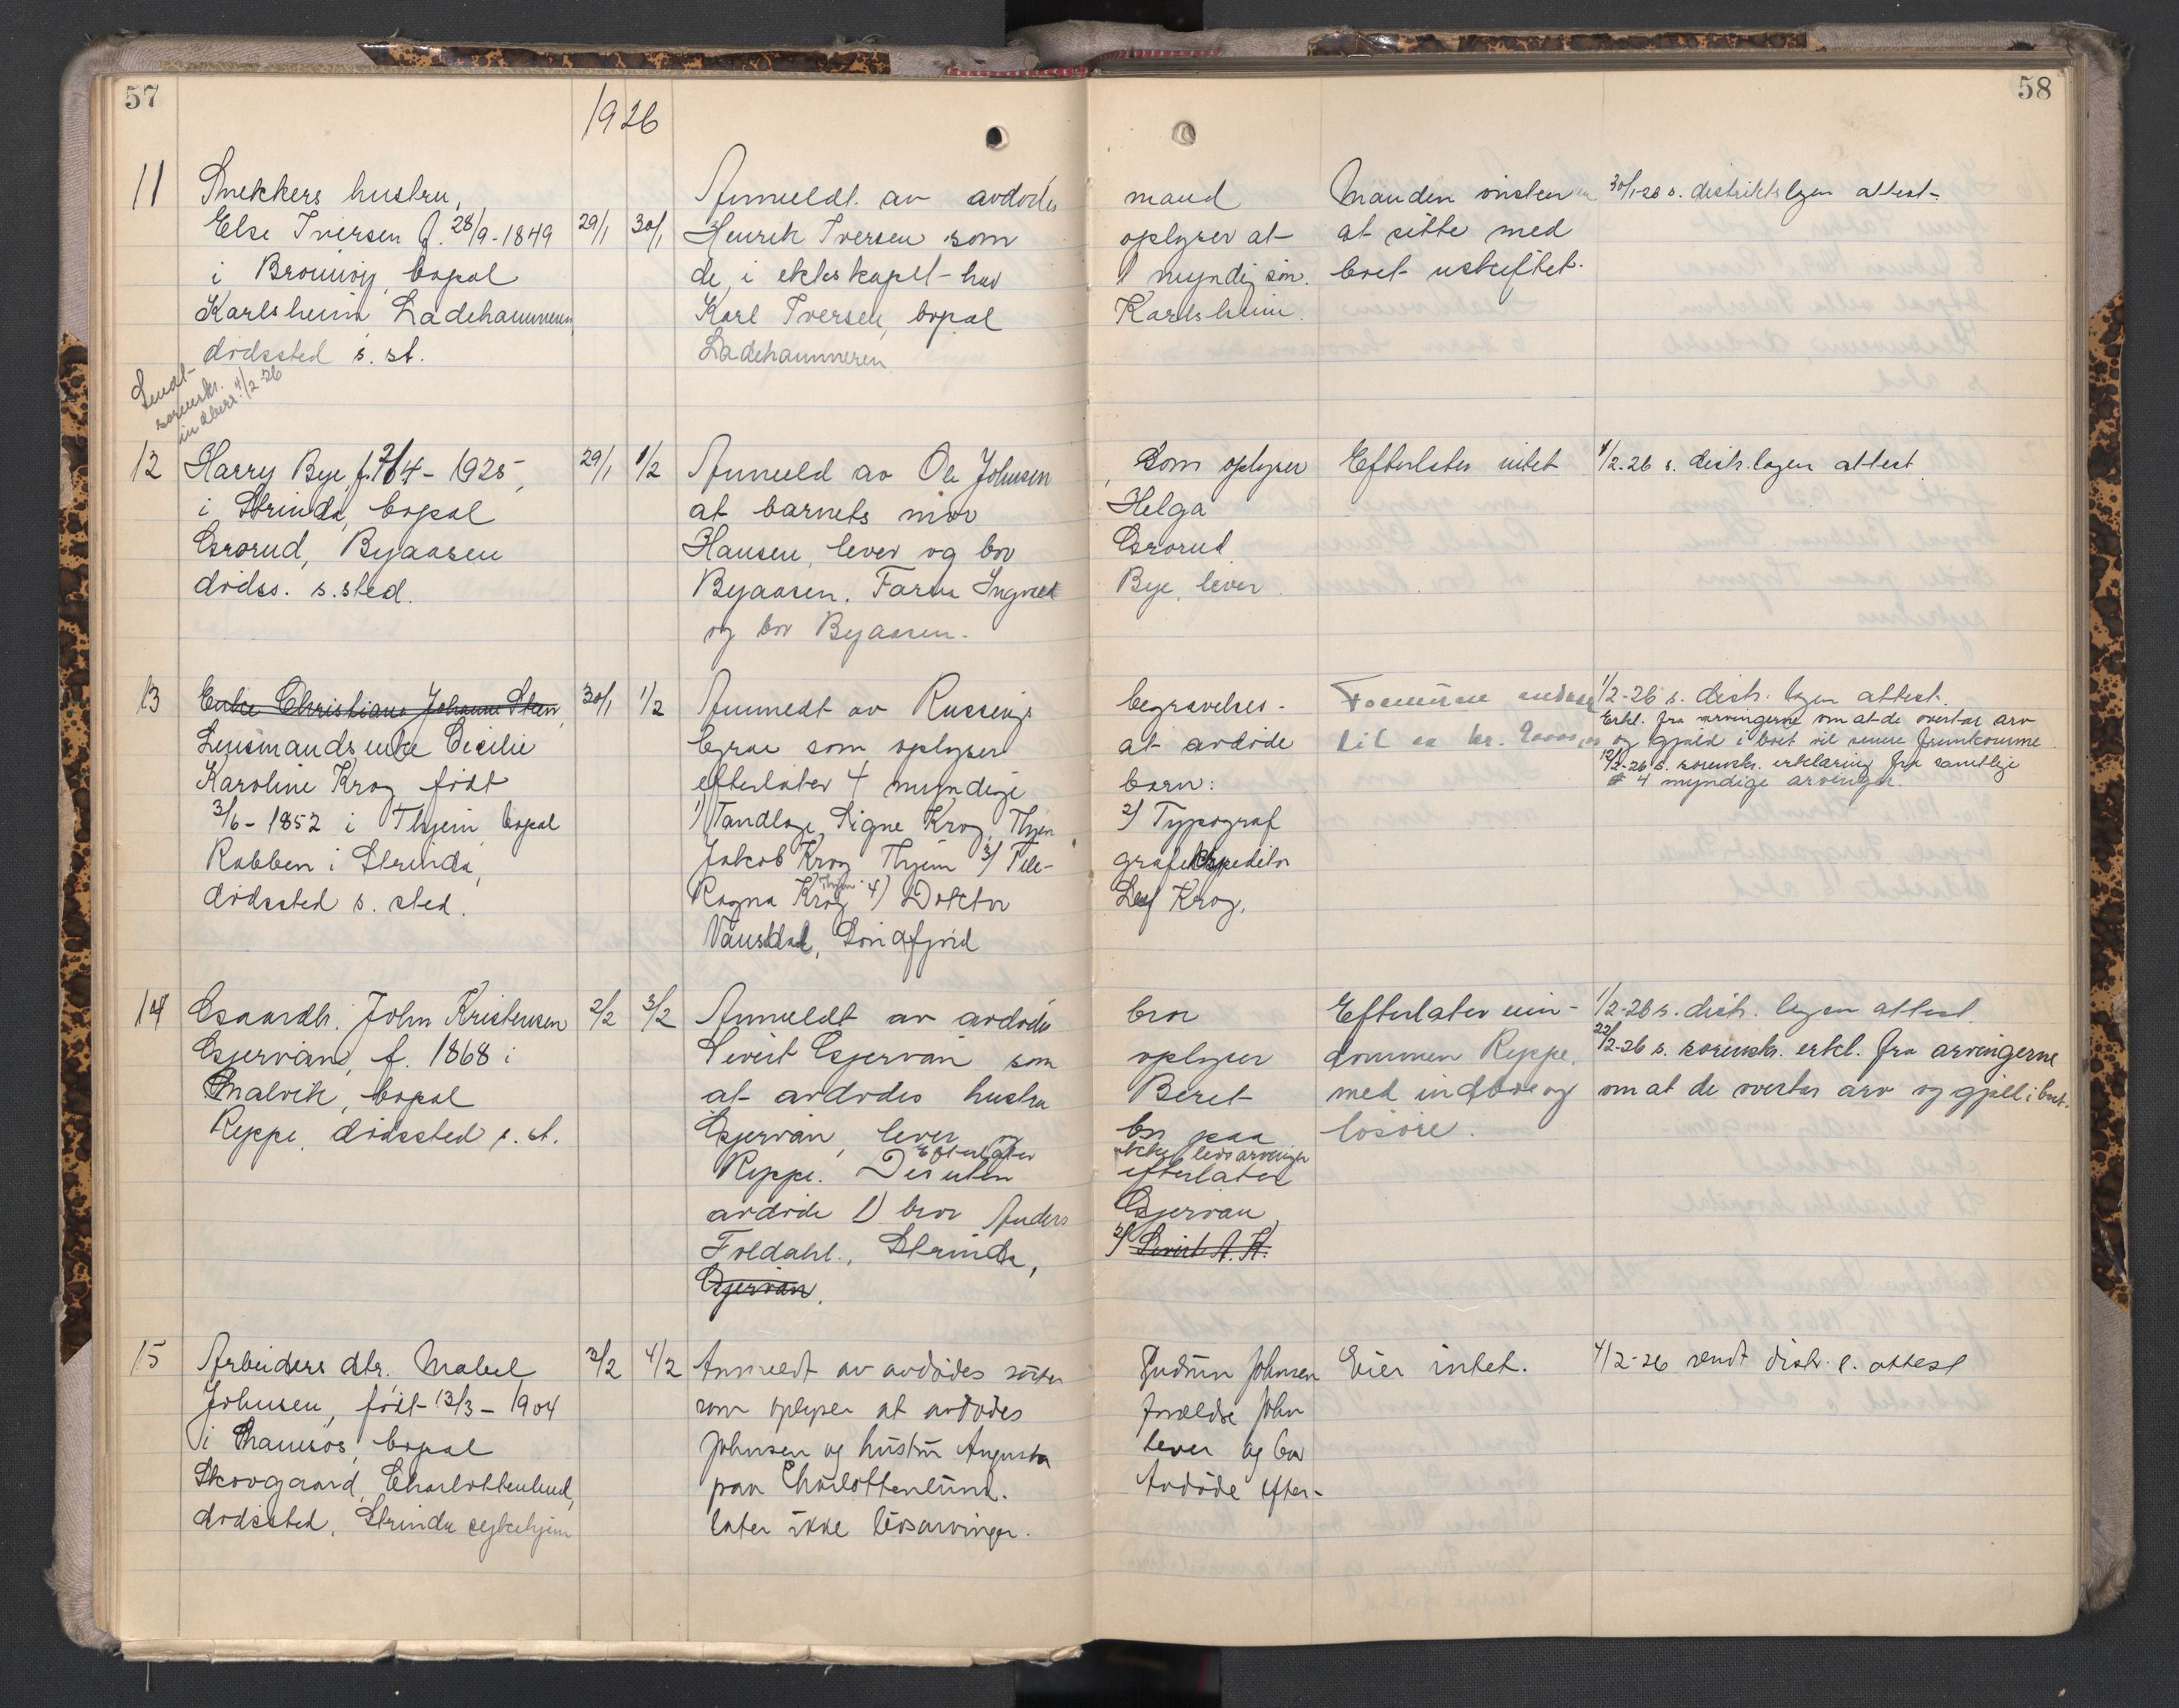 57
58
1926
11
Snekkers hustru,
Else Iversen f. 28/9-1849
i Brønnøy, bopal
Karlsheim, Ladehammeren
dødssted s. st.
29/1
30/1
Anmeldt av avdødes mand
Henrik Iversen som oplyser at
de i ekteskapet har 1 myndig søn.
Karl Iversen, bopal Karlsheim.
Ladehammeren
Manden ønsker
at sitte med
boet uskiftet.
30/1-26 s. distriktslægen attest.
Sendt
sorenskr.
4/2-26
12
Harry Bye, f. 4-1925,
i Strinda, bopal
Byaasen
dødss. s. sted.
29/1
1/2
Anmeld av Ole Johnsen som oplyser
at barnets mor Helga
Hansen, lever og bor
Byaasen. Faren Ingvald Bye, lever
og bor Byaasen.
Efterlater intet
1/2-26 s. distr.lægen attest.
13
Enke Christiane Johanne Steen
Lensmandsenke Cecilie
Karoline Krog født
3/6-1852 i Thjem, bopal
Rabben i Strinda,
dødssted s. sted.
30/1
1/2
Anmeldt av begravelses-
byrae som oplyser at avdøde
efterlater 4 myndige børn:
1) Tandlæge Signe Krog, Thjem 2) Typograf
Jakob Krog Thjem 3) Tele-grafekspeditør
Ragna Krog Thjem 4) Doktor Leif Krog,
Søndfjord
Formuen
til ca kr.
1/2-26 s. distr. lægen attest.
Erkl. fra arvingerne om at de overtar arv
og gjæld i boet vil senere fremkomme.
12/2-26 s. sorenskr. erklæring fra samtlige
4 myndige arvinger.
14
Gaardbr. John Kristensen
Gjervan, f. 1868 i
Malvik, bopal
Reppe, dødssted s. st.
2/2
3/2
Anmeldt av avdødes bror
Sivert Gjervan som oplyser
at avdødes hustru Beret
Gjervan, lever og bor paa
Efterlater ikke livsarvinger
Reppe. Desuten efterlater
avdøde 1) bror Anders Gjervan,
Foldahl., Strinda, 2) Sivert A. K.
Gjervan.
Efterlater ein-
dommen Reppe,
med indbo og
løsøre.
1/2-26 s. distr. lægen attest.
22/2-26 s. sorenskr. erkl. fra arvingerne
om at de overtar arv og gjæld i boet.
15
Arbeiders dtr. Mabel
Johnsen, født 13/3-1904
i Namsos, bopal
Skovgaard, Charlottenlund,
dødssted, Strinda sykehjem
3/2
4/2
Anmeldt av avdødes søster Gudrun Johnsen
som oplyser at avdødes forældre John
Johnsen og hustru Augusta lever og bor
paa Charlottenlund. Avdøde efter-
later ikke livsarvinger.
Eier intet.
4/2-26 sendt distr. l. attest